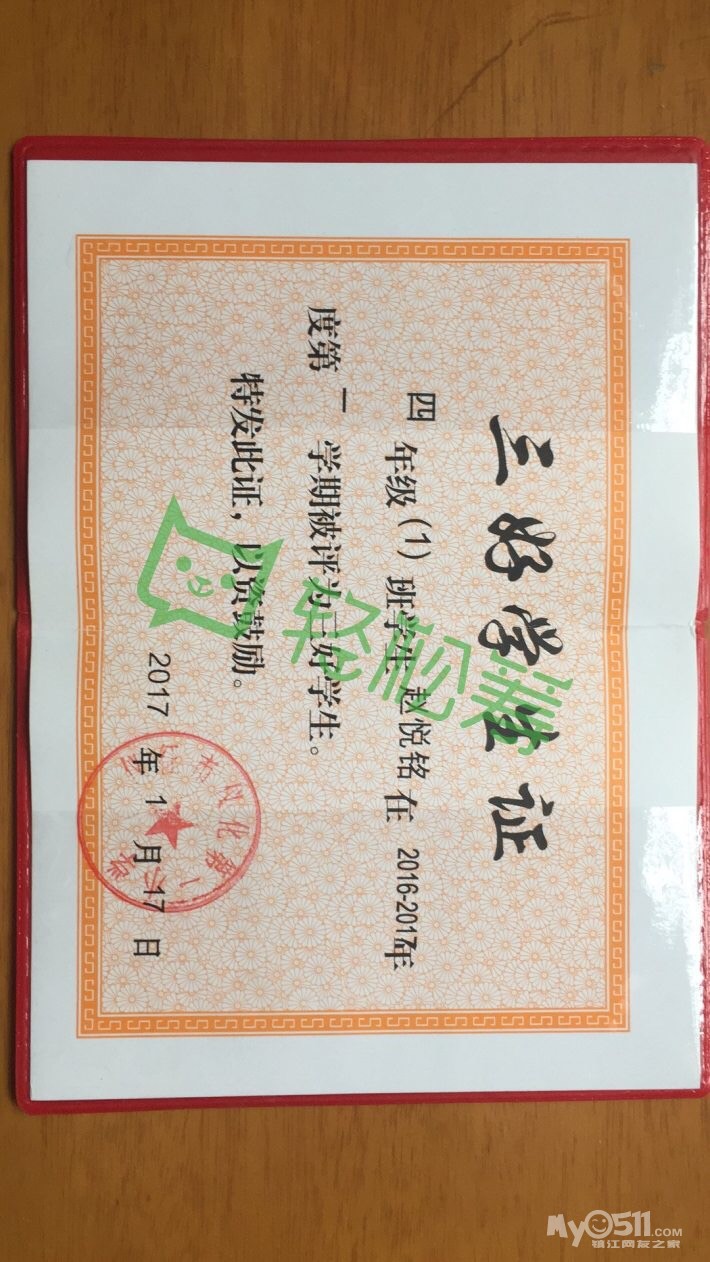 三好学生证
四 年级（1）班学生 赵悦铭 在 2016-2017年
度第 一 学期被评为三好学生。
特发此证，以资鼓励。
2017 年 1 月 17 日
轻视界
My0511.com
镇江网友之家